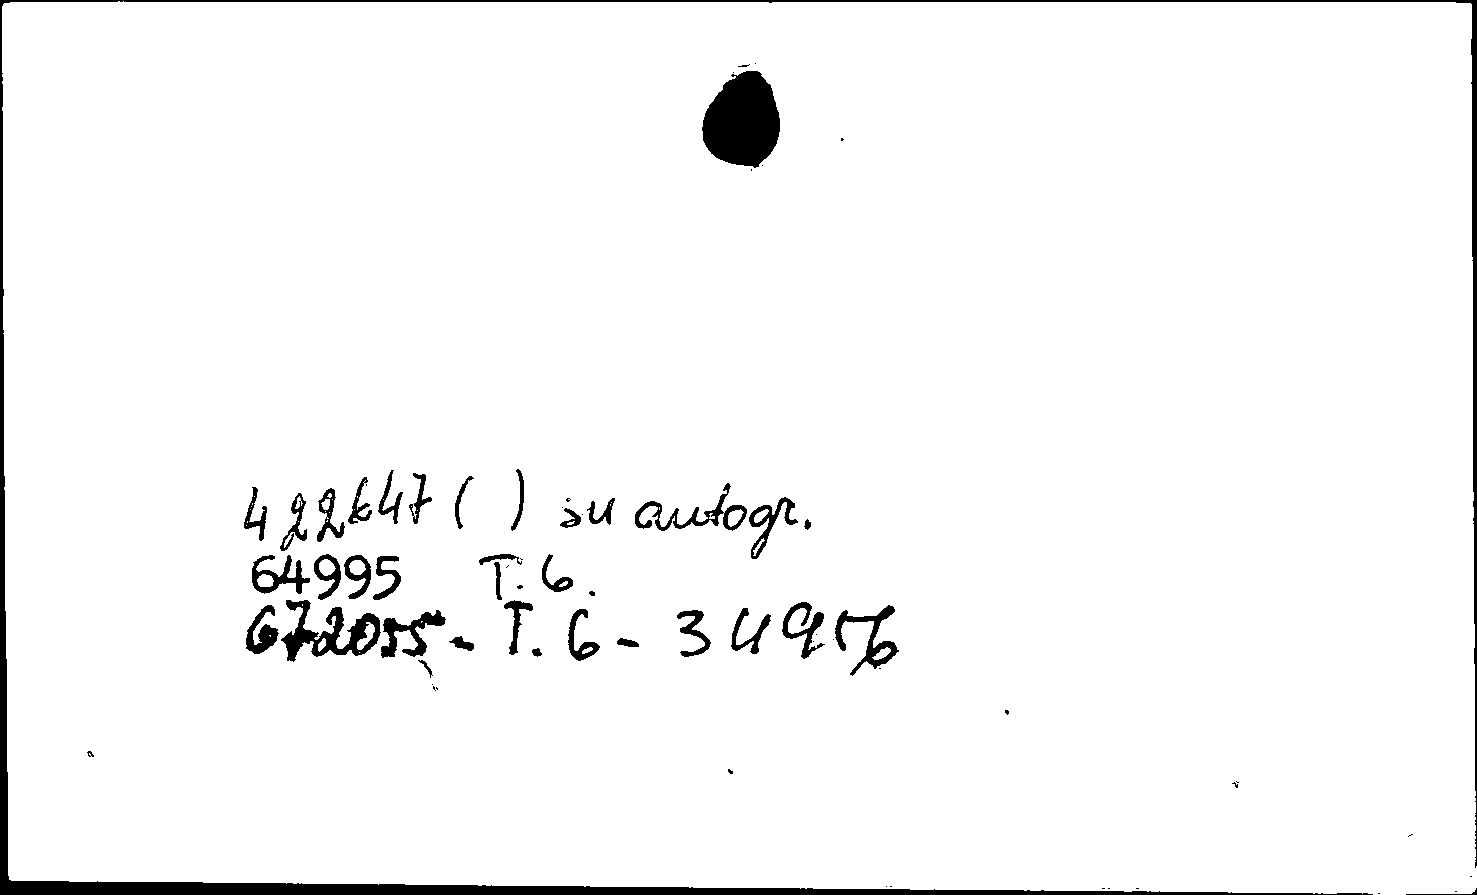 422647 ( ) su autogr.
64995 T. 6.
672055 - T. 6 - 34956